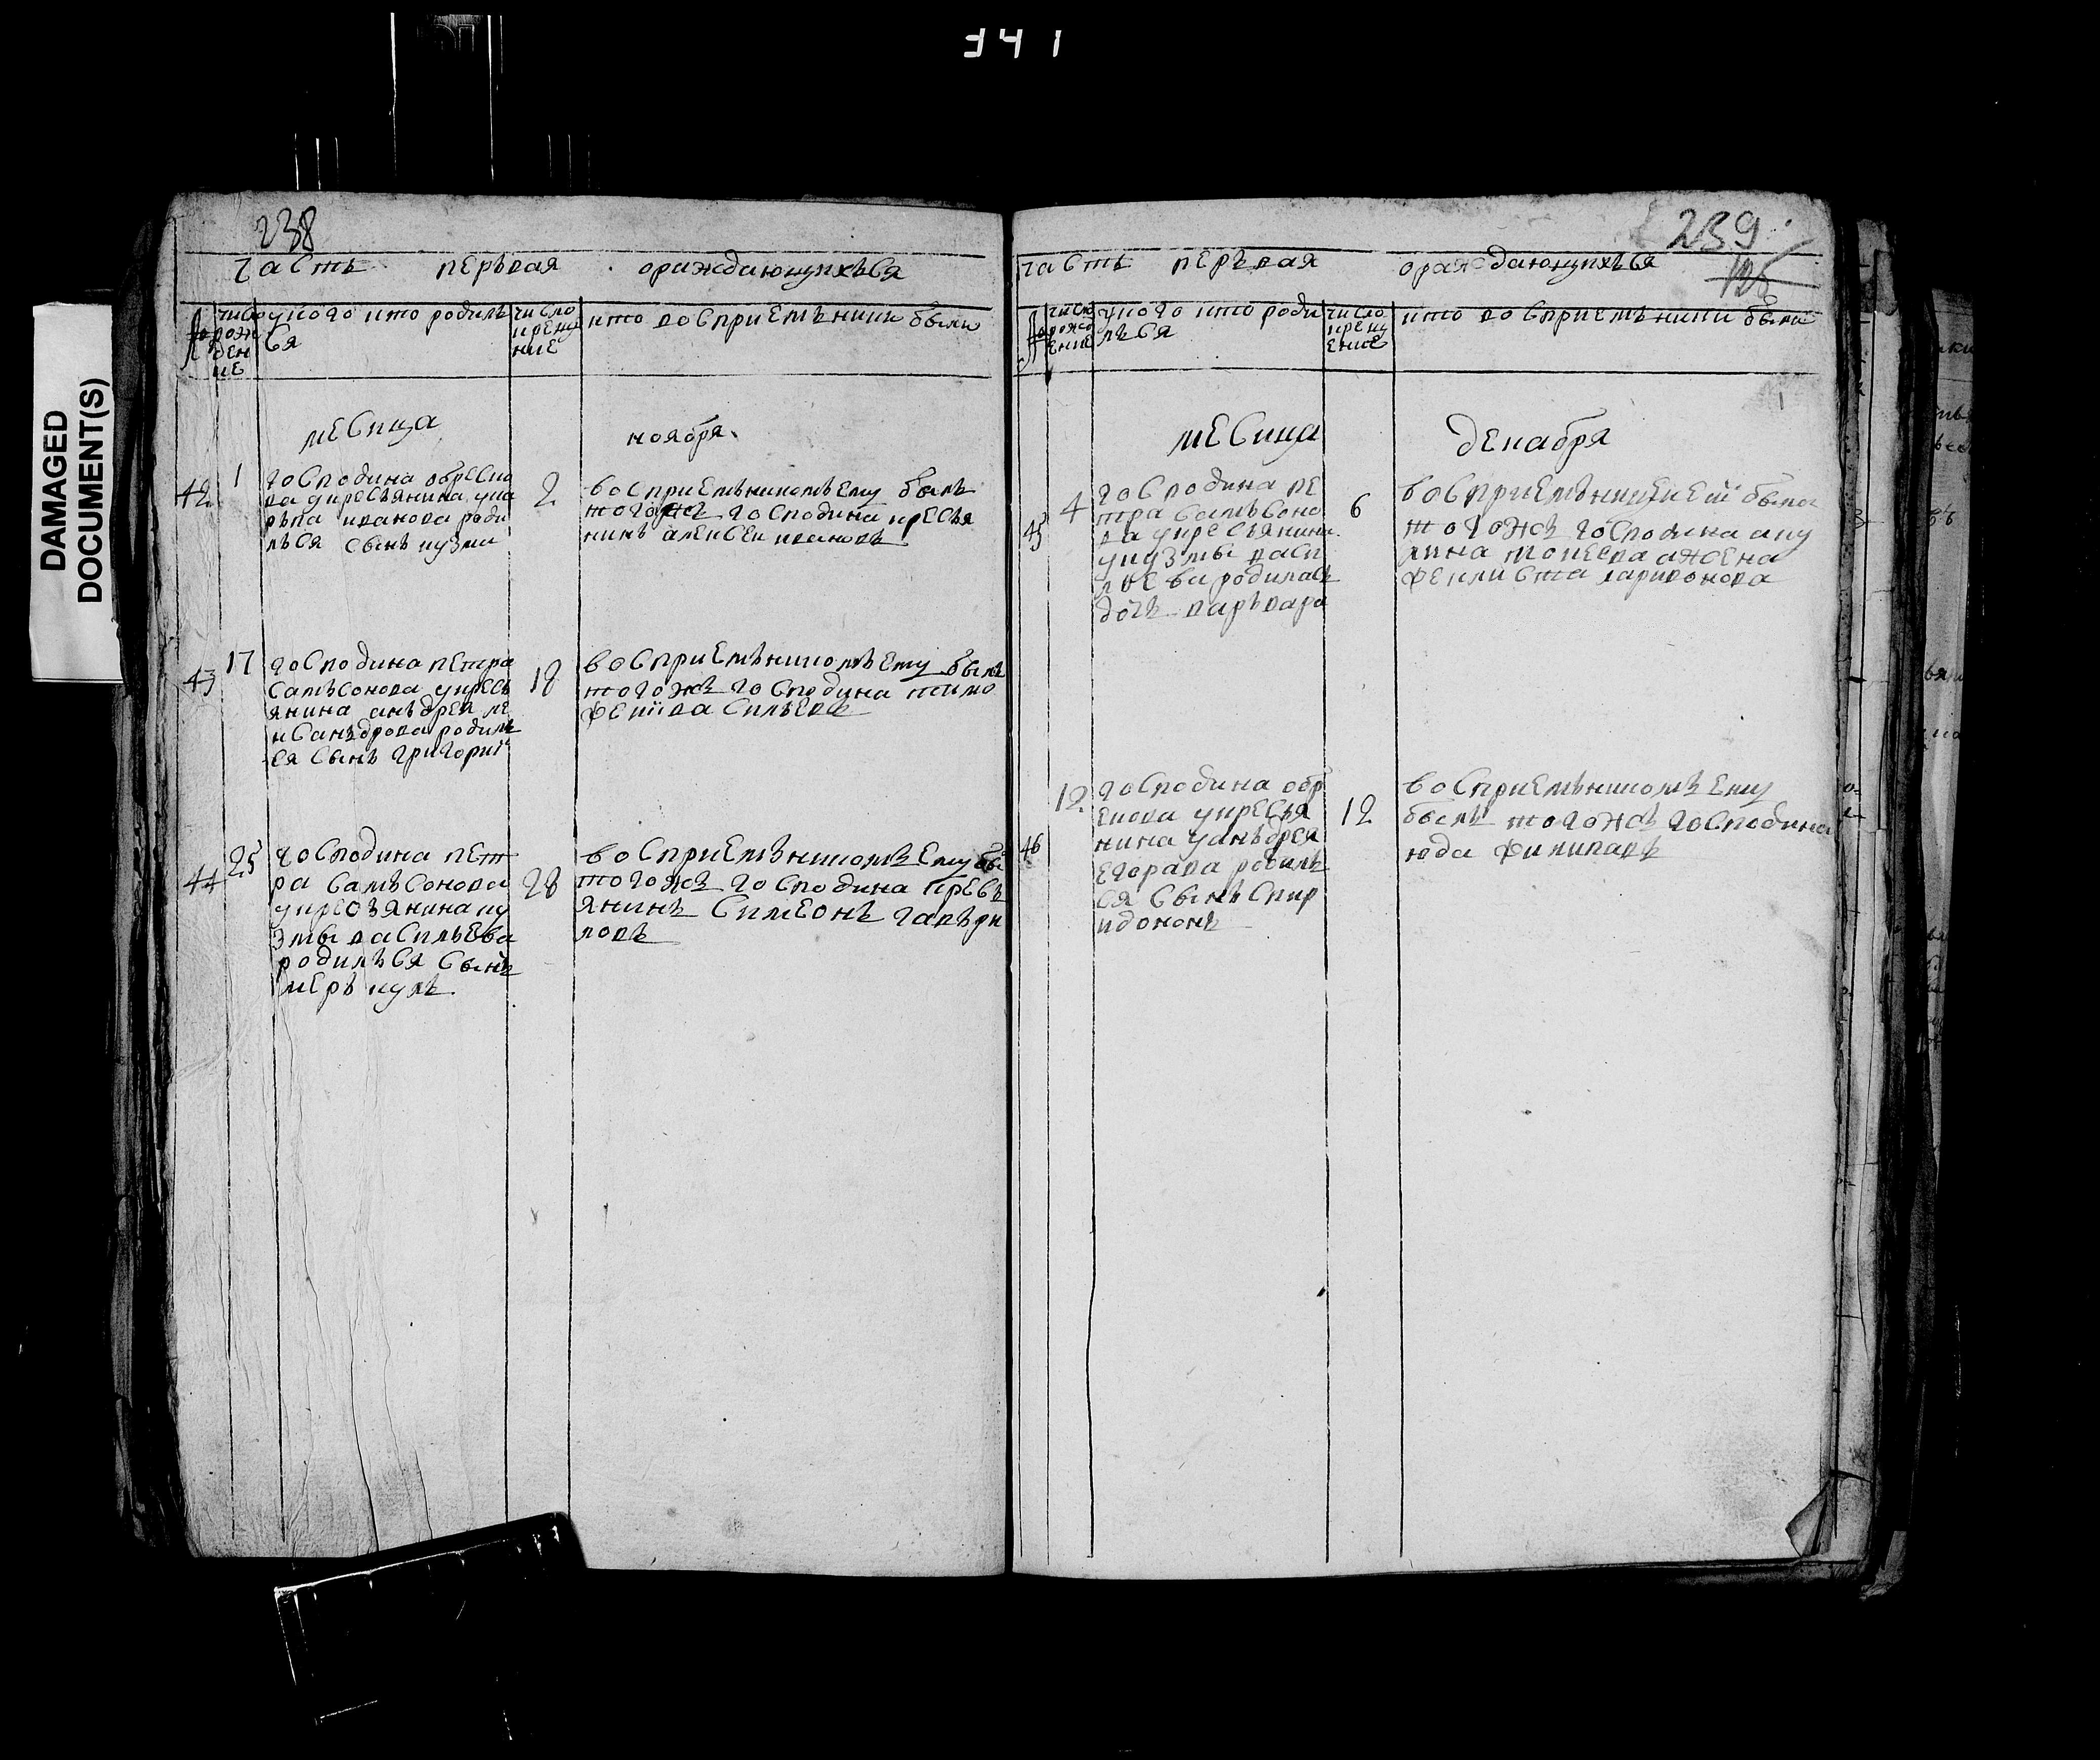 341
DAMAGED
DOCUMENT(S)
238
часть перьвая ораждающихься
число рождение
укого кто родилься
число крещение
кто восприемьники были
месица ноября
42
1
господина обреско
ва укресьянина ука
рьпа иванова роди
лься сынь кузма
2
восприемьникомь ему быль
тогожь господина кресья
нинь алексеи ивановь
43
17
господина петра
самьсонова укресь
янина аньдрея ле
ксаньдрова родил
ся сынь григорий
18
восприемьникомь ему быль
тогожь господина тимо
феи васильевь
44
25
господина пет
ра самьсонова
укресьянина ку
змы васильева
родилься сынь
меркуль
28
восприемьникомь ему бы
тогожь господина кресь
янинь симеонь гаврь
ловь
239
часть перьвая ораждающихься
число рождение
укого кто роди
лься
число крещение
кто восприемьники были
месица декабря
45
4
господина пе
тра самьсоно
ва укресьянина
укузмы васи
льева родилась
дочь варьвара
6
восприемьницеи еи была
тогожь господина аку
лина мокеева жена
феклиста ларивонова
46
12
господина обр
ескова укресья
нина уаньдрея
егорава родиль
ся сынь спир
идононь
12
восприемьникомь ему
быль тогожь господина
юда филипавь